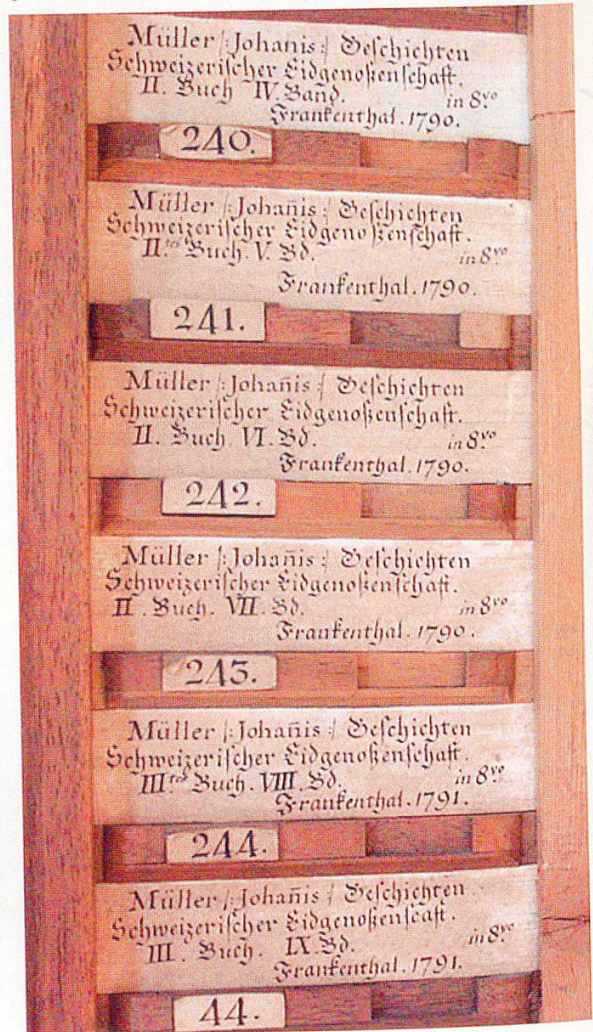 Müller /: Johanis :/ Geschichten
Schweizerischer Eidgenoßenschaft.
II. Buch IV. Band. in 8.vo
Frankenthal. 1790.
240.
Müller /: Johan̄is :/ Geschichten
Schweizerischer Eidgenoßenschaft.
II.tes Buch. V. Bd. in 8.vo
Frankenthal. 1790.
241.
Müller /: Johan̄is :/ Geschichten
Schweizerischer Eidgenoßenschaft.
II. Buch. VI. Bd. in 8.vo
Frankenthal. 1790.
242.
Müller /: Johan̄is :/ Geschichten
Schweizerischer Eidgenoßenschaft.
II. Buch. VII. Bd. in 8.vo
Frankenthal. 1790.
243.
Müller /: Johan̄is :/ Geschichten
Schweizerischer Eidgenoßenschaft.
III.tes Buch. VIII. Bd. in 8.vo
Frankenthal. 1791.
244.
Müller /: Johan̄is :/ Geschichten
Schweizerischer Eidgenoßenscaft.
III. Buch. IX. Bd. in 8.vo
Frankenthal. 1791.
44.